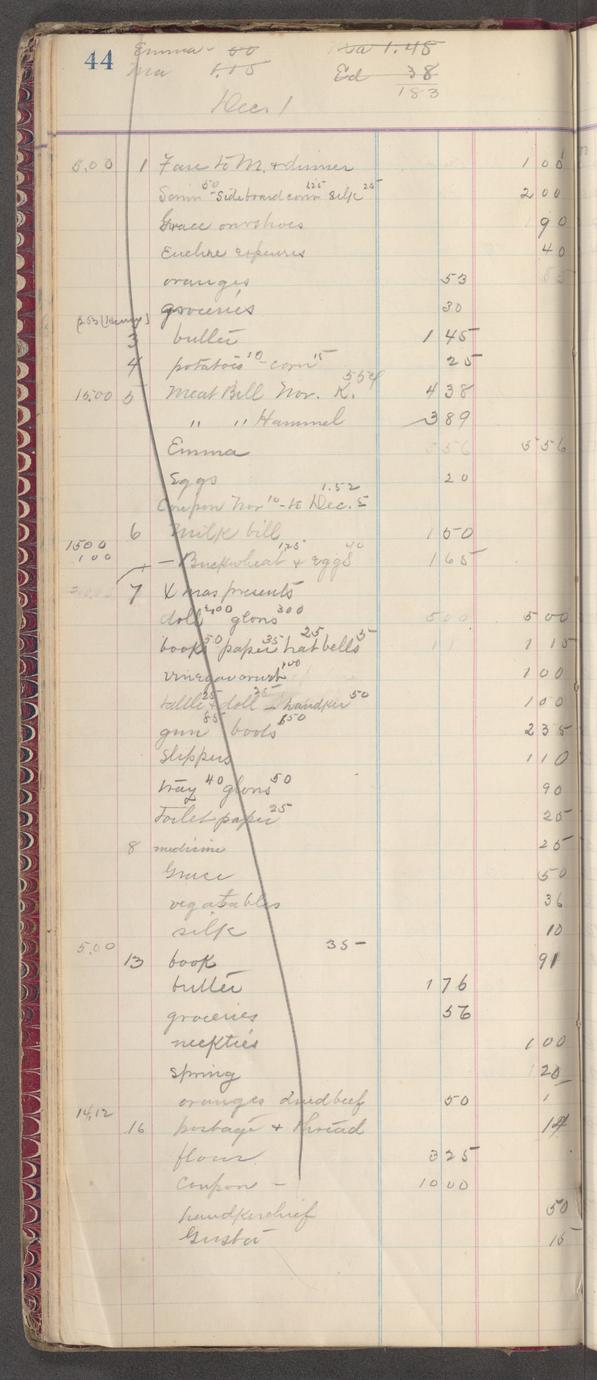 44 Emma - 60 Ma 1.45
Ma 1.15 Ed 38
183
Dec. 1
5.00 1 Fare to M. + dinner 1 00
50 Sideboard cover 125 silk 25 2 00
Grace overshoes 90
Euchre expenses 40
oranges 53
groceries 30
3 butter 1 45
4 potatoes 10 - corn 15 25
554
15.00 5 Meat Bill Nov. K. 4 38
" " Hammel 3 89
Emma 5 56
Eggs 20
1.52
Coupon Nov 10 - to Dec. 5
6 Milk bill 1 50
1500
1 00 - Buckwheat 125 + eggs 40 1 65
7 Xmas presents
doll 200 gloves 300 5 00 5 00
book 50 paper 35 hat 25 bells 5 1 15
100 1 00
25 + doll 25 - handker 50 1 00
gun 85 boots 150 2 35
Slippers 1 10
tray 40 gloves 50 90
Toilet paper 25 25
8 medicine 25
Grace 50
vegatables 36
silk 10
5.00 35
13 book 91
butter 1 76
groceries 56
neckties 1 00
spring 20
oranges dried beef 50
14.12
16 postage + thread 14
flour 3 25
Coupon - 10 00
handkerchief 50
15